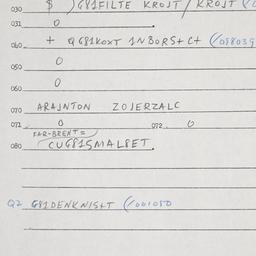 030 $ )G81FILTE KROJT / KROJT
031 0
+ QG81KOXT 1NBORS+C+ (/098039
060
050 0
060 0
070 ARAJNTON ZOJERZALC
071 0 072 0
FAR-BREHT=
080 CUG81SMALBET
Q2 G81DENKNIS+T (/001080